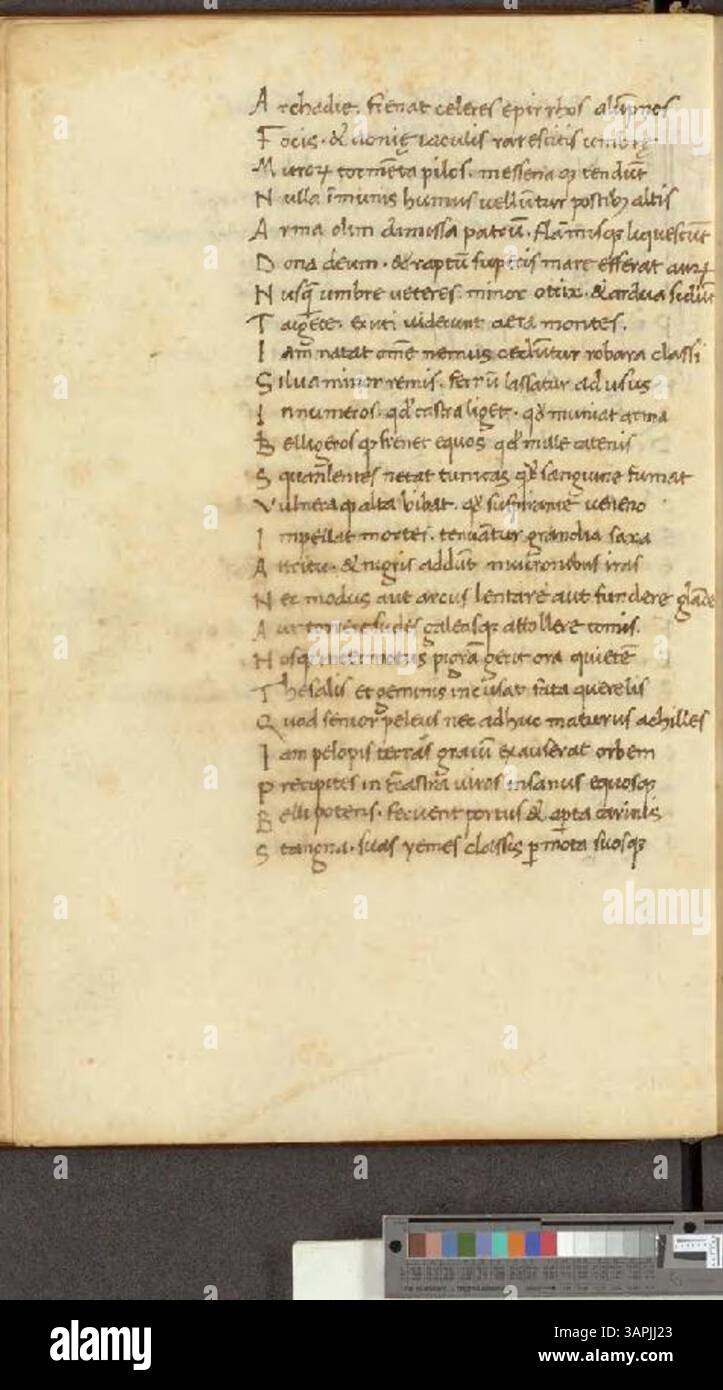 Archadie. frenat celeres epirrhos alumnos
Focis. & aonię iaculis rarescitis umbrę
Muroꝝ tormēta pilos. messena qꝫ tendūt
Nulla īmunis humus uellūtur postibꝫ altis
Arma olim dimissa patrū. flāmisqꝫ liquescūt
Dona deum. & raptū supeis mare efferat auꝝ
Nusq̄ umbre ueteres. minor otrix. & ardua sidūt
Taigēte. exuti uiderunt aera montes.
Iam natat om̄e nemus ceduntur robora classi
Silua minor remis. ferrū lassatur ad usus
Innumeros. qđ castra liget. qđ muniat arma
Belligeros qꝫ frenet equos qđ mille catenis
Squamentes netat tunicas qđ sanguine fumat
Vulneraqꝫ alta bibat. qđ suspirante ueneno
Impellat mortes. tenuātur grandia saxa
Attritu. & nigris addūt mucronibus iras
Nec modus aut arcus lentare aut fundere glāde
Aut torrere sudes galeasqꝫ attollere conis.
Nosqꝫ inter motus pigrā gerit ora quietē
Thesalis et geminis incusat fata querelis
Quod senior peleus nec adhuc maturus achilles
Iam pelopis terras graiū exauserat orbem
Precipites in trāstra uiros insanus equosqꝫ
Bellipotens. feruent portus & opta carinis
Stangna. suas yemes classis p̱mota suosqꝫ
alamy
Image ID: 3APJJ23
www.alamy.com